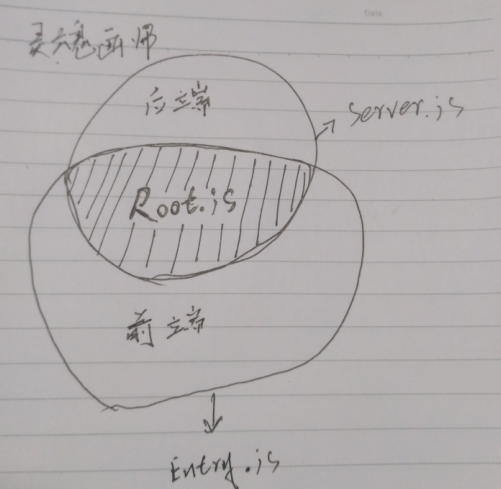 灵魂画师
后端
server.js
Root.js
前端
Entry.js